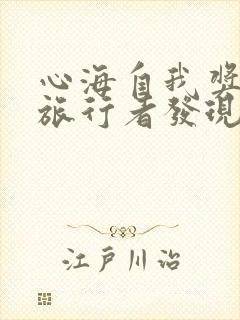 心海自我奬
旅行者發現
江戸川治